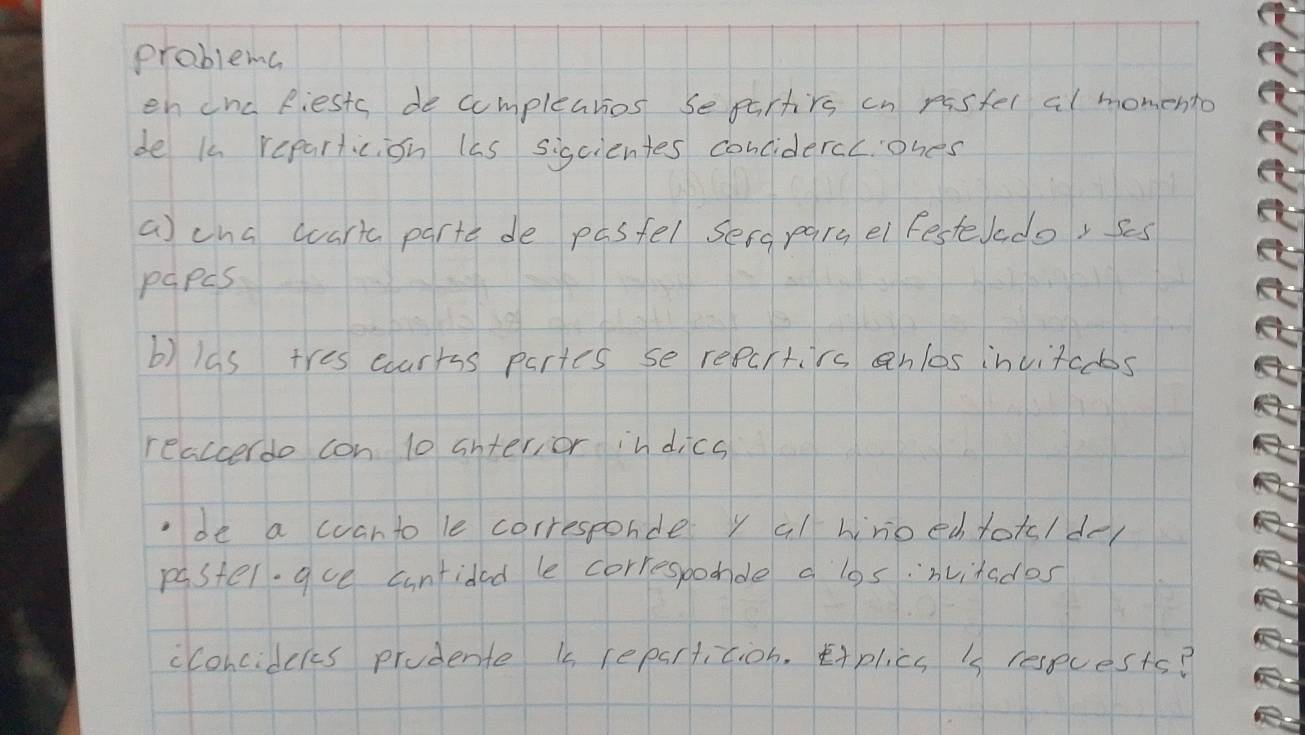 problema
en una fiesta de cumpleaños se partira un pastel al momento
de la repartición las siguientes concideraciones
a) una cuarta parte de pastel sera para el festejado y sus
papas
b) las tres cuartas partes se repartira en los invitados
reacuerdo con lo anterior indica
• de a cuanto le corresponde y al niño en total del
pastel. que cantidad le corresponde a los invitados
¿Concideras prudente la repartición. Explica la respuesta?